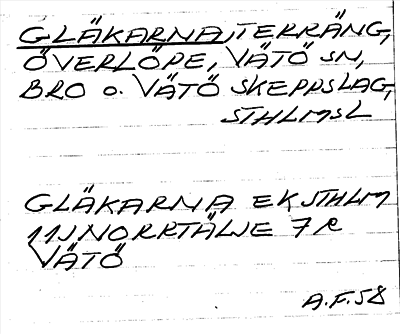 GLÄKARNA, TERRÄNG,
ÖVERLÖPE, VÄTÖ SN,
BRO O. VÄTÖ SKEPPSLAG,
STHLMSL
GLÄKARNA EK STHLM
11J NORRTÄLJE 7 R
VÄTÖ
A.F. 58